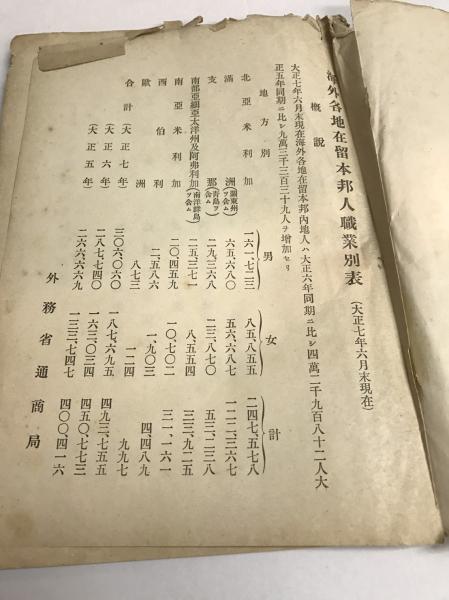 海外各地在留本邦人職業別表(大正七年六月末現在)
概說
大正七年六月末現在海外各地在留本邦內地人ハ大正六年同期ニ比シ四萬二千九百八十二人大
正五年同期ニ比シ九萬三千三百三十九人ヲ增加セリ
地方別 男 女 計
北亞米利加 一六一、七二三 八五、八五五 二四七、五七八
滿洲(關東州ヲ含ム) 六五、六八〇 五六、六八七 一二二、三六七
支那(青島ヲ含ム) 二九、三六八 二三、八七〇 五三、二三八
南部亞細亞大洋州及阿弗利加(南洋群島ヲ含ム) 二五、三七一 八、五五四 三三、九二五
南亞米利加 二〇、四五九 一〇、七〇二 三一、一六一
西伯利 二、五八六 一、九〇三 四、四八九
歐洲 八七三 一二四 九九七
合計(大正七年) 三〇六、〇六〇 一八七、六九五 四九三、七五五
(大正六年) 二八七、七四〇 一六三、〇三四 四五〇、七七三
(大正五年) 二六六、六六九 一三三、七四七 四〇〇、四一六
外務省通商局